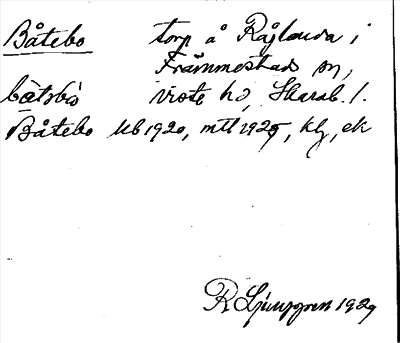 Båtebo torp å Råglanda i
Främmestads sn,
båtbò Viste hd, Skarab. l.
Båtebo kb 1920, mtl 1925, klg, ek
R Ljunggren 1929